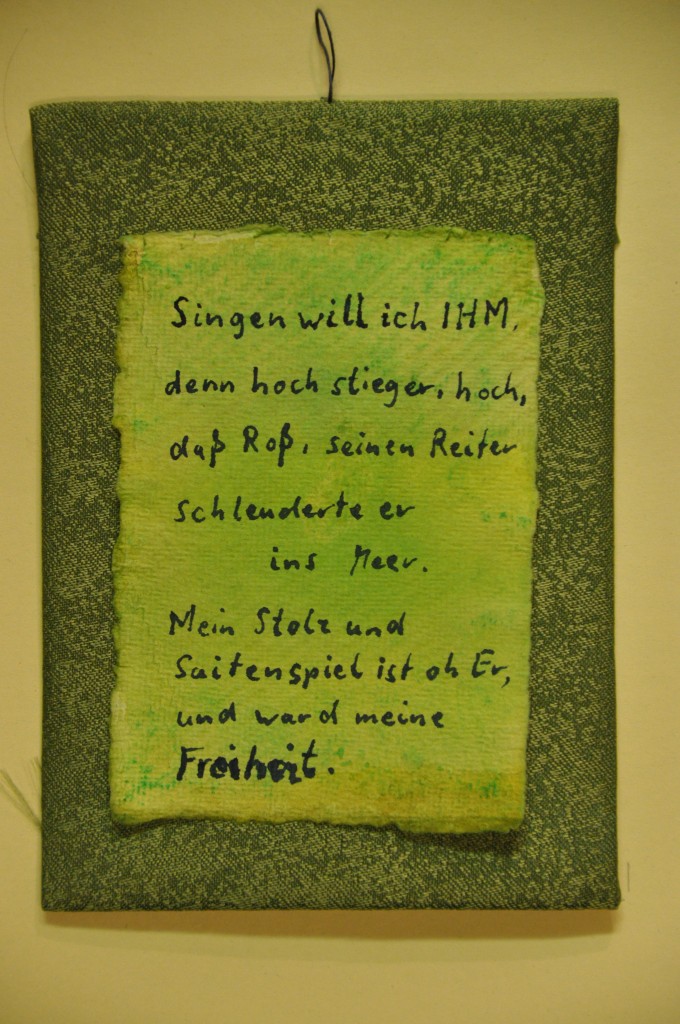 Singen will ich IHM,
denn hoch stieg er, hoch,
daß Roß, seinen Reiter
schleuderte er
ins Meer.
Mein Stolz und
Saitenspiel ist oh Er,
und ward meine
Freiheit.